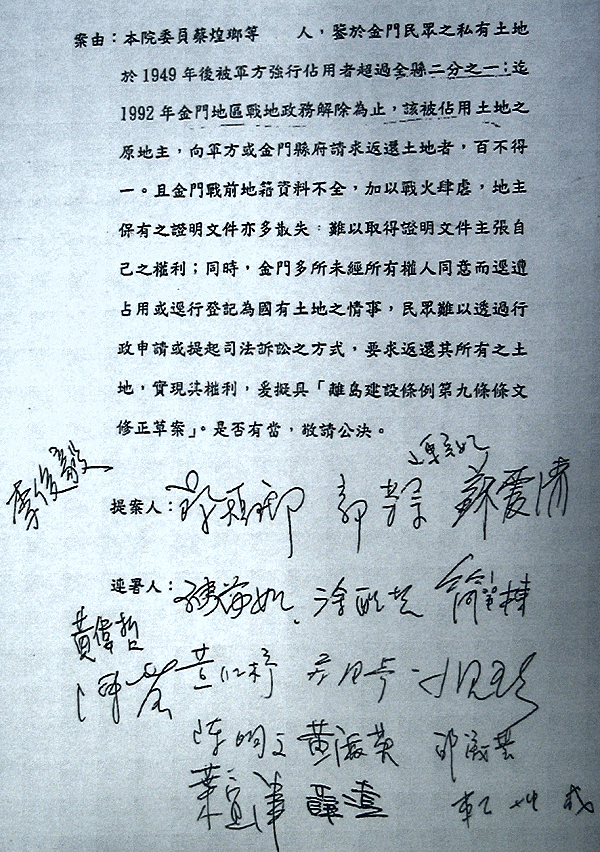 案由：本院委員蔡煌瑯等　　人，鑒於金門民眾之私有土地
於1949年後被軍方強行佔用者超過全縣二分之一；迄
1992年金門地區戰地政務解除為止，該被佔用土地之
原地主，向軍方或金門縣府請求返還土地者，百不得
一。且金門戰前地籍資料不全，加以戰火肆虐，地主
保有之證明文件亦多散失，難以取得證明文件主張自
己之權利；同時，金門多所未經所有權人同意而逕遭
占用或逕行登記為國有土地之情事，民眾難以透過行
政申請或提起司法訴訟之方式，要求返還其所有之土
地，實現其權利，爰擬具「離島建設條例第九條條文
修正草案」。是否有當，敬請公決。
李俊毅
提案人：蔡煌瑯 蘇震清
連署人：
黃偉哲
黃仁杼
陳明文 黃淑英 邱議瑩
葉宜津 薛凌